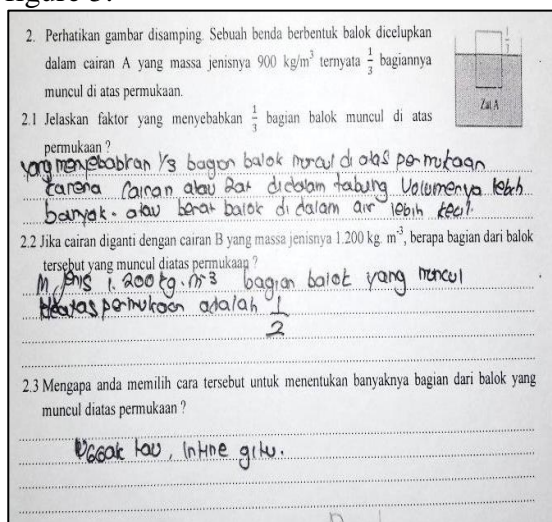 2. Perhatikan gambar disamping. Sebuah benda berbentuk balok dicelupkan
dalam cairan A yang massa jenisnya 900 kg/m³ ternyata 1/3 bagiannya
muncul di atas permukaan.
1/3
Zat A
2.1 Jelaskan faktor yang menyebabkan 1/3 bagian balok muncul di atas
permukaan ?
yang menyebabkan 1/3 bagan balok muncul di atas permukaan
karena Cairan atau Zat didalam tabung Volumenya lebih
banyak. atau berat balok di dalam air lebih kecil.
2.2 Jika cairan diganti dengan cairan B yang massa jenisnya 1.200 kg. m⁻³, berapa bagian dari balok
tersebut yang muncul diatas permukaan ?
M, jenis 1.200 kg.m⁻³ bagian balok yang muncul
diatas permukaan adalah 1/2
2.3 Mengapa anda memilih cara tersebut untuk menentukan banyaknya bagian dari balok yang
muncul diatas permukaan ?
Nggak tau, intine gitu.